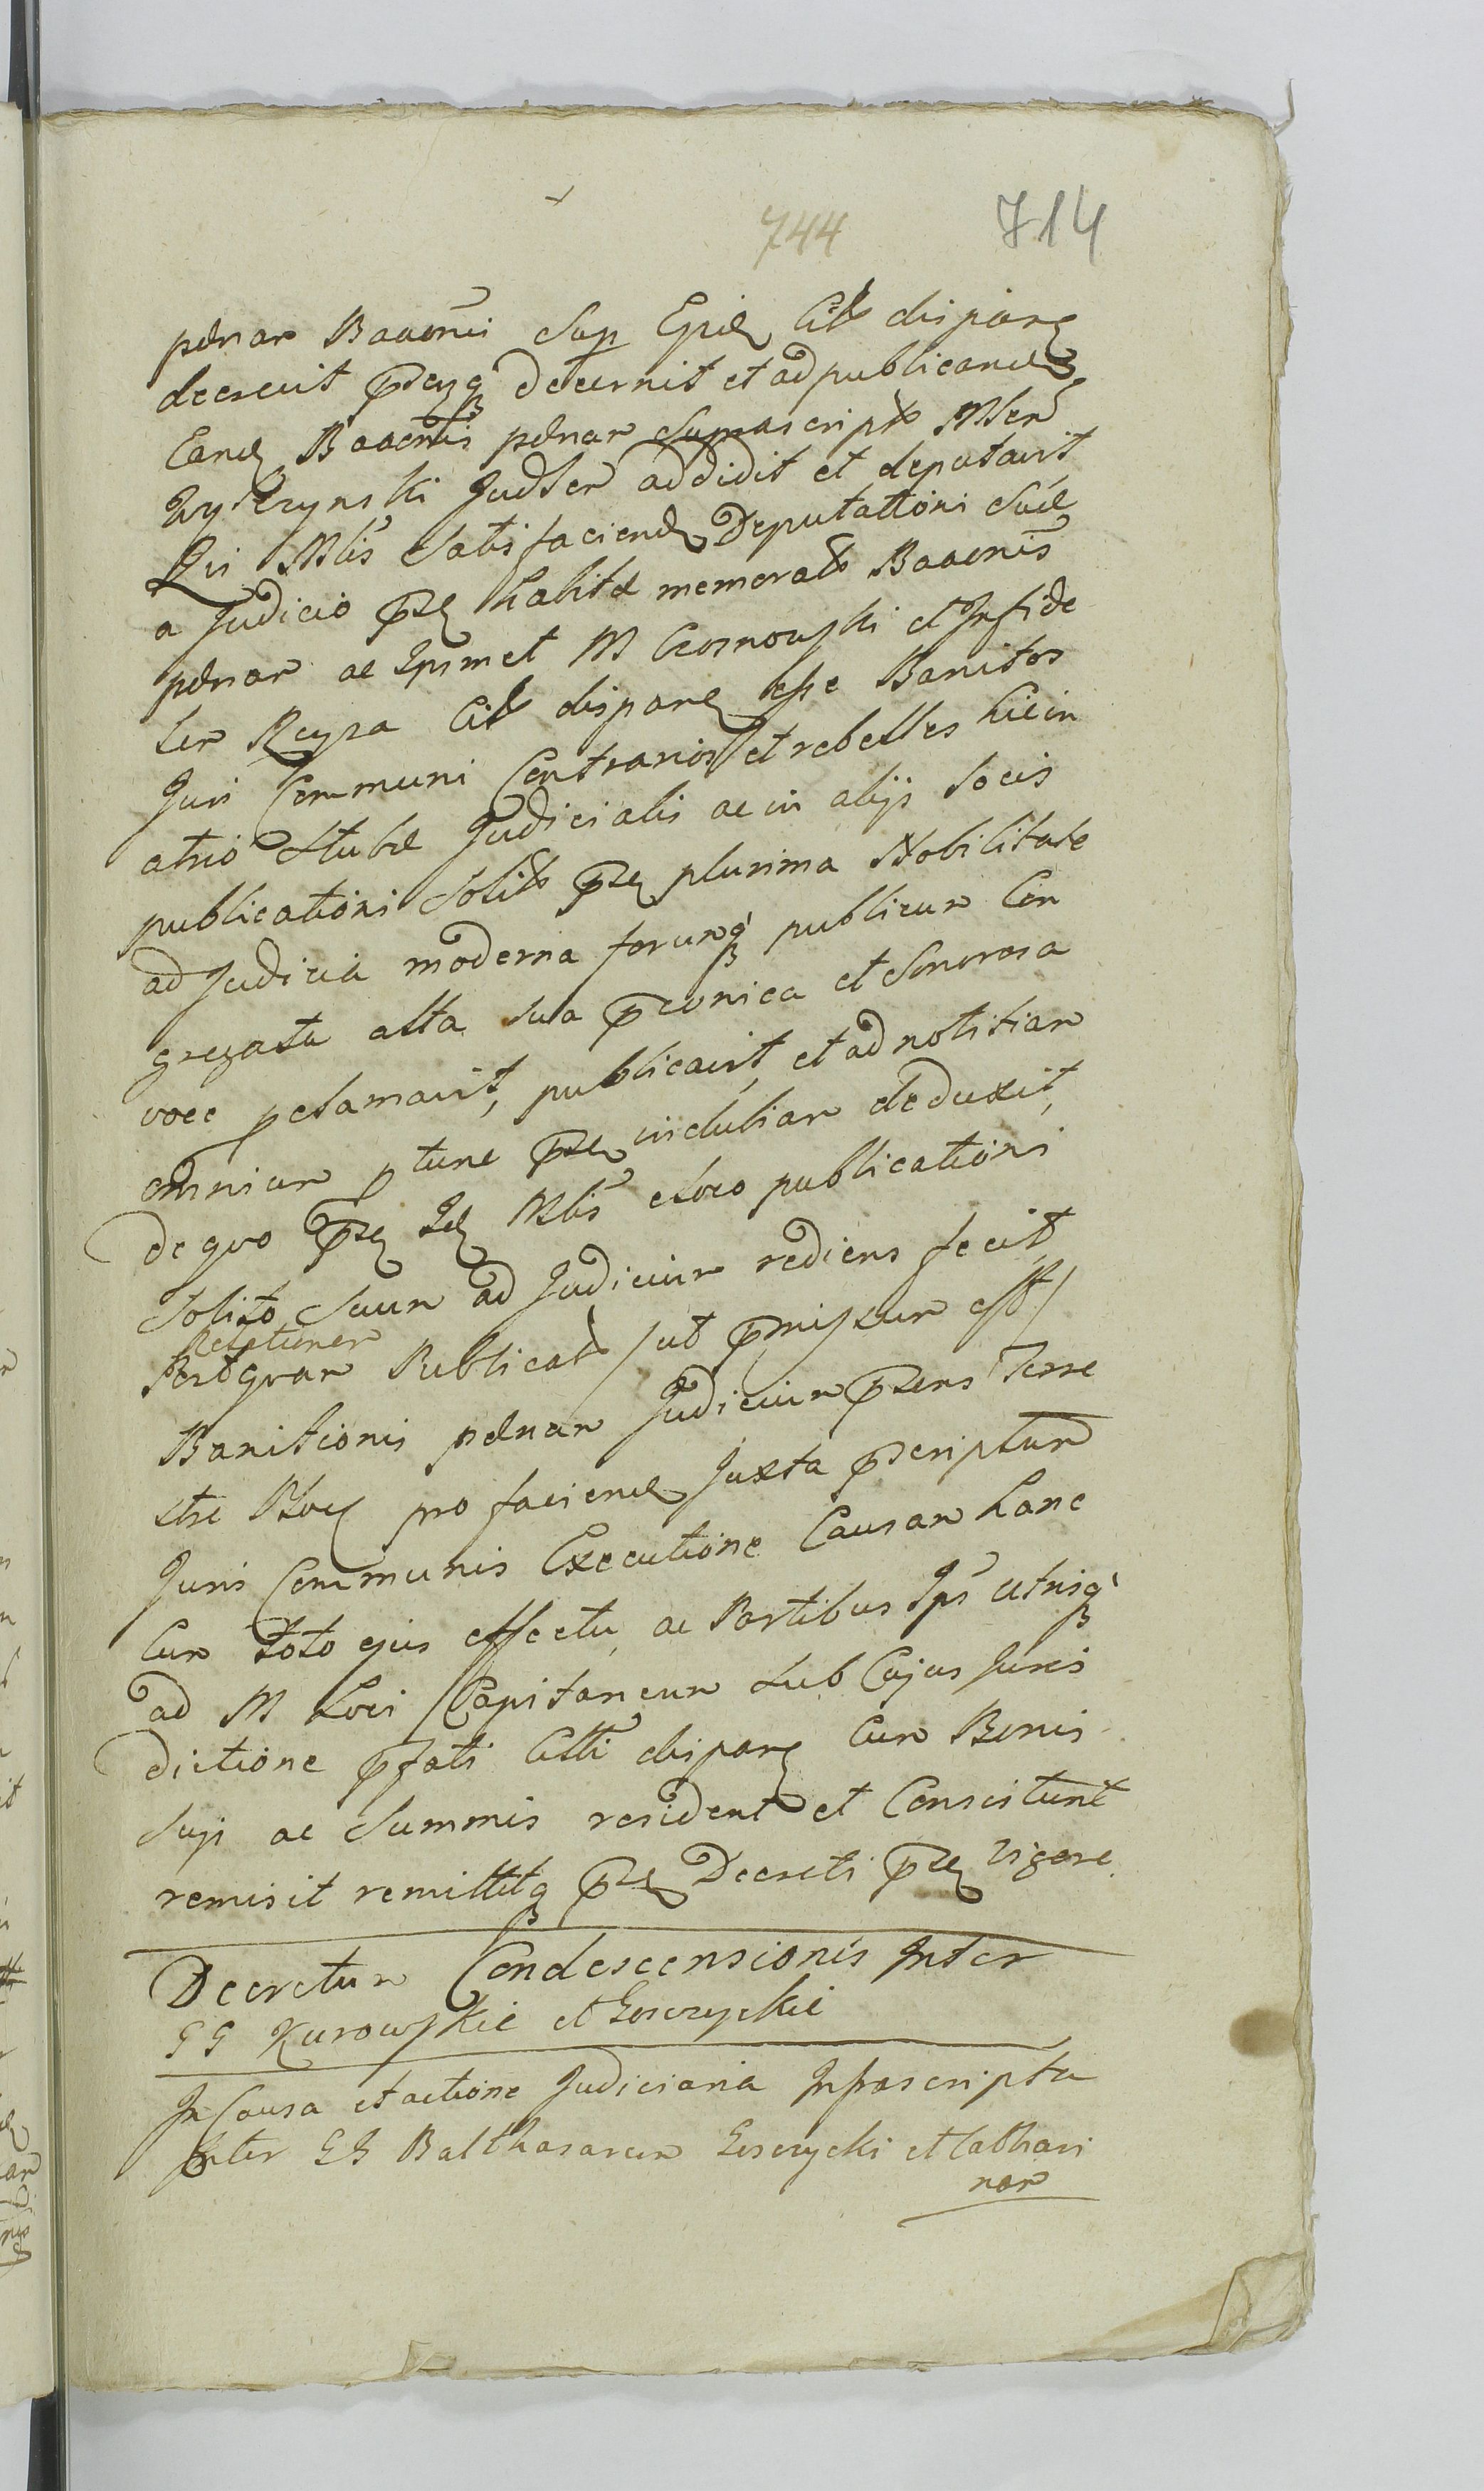 744 714
pdnar Baaonis Sup Epis Citt disparę
decreuit pñzq decernit et ad publicand
Eand Baaonis pdnar Suprascript Mlem
Judler addidit et deputauit
Qui Mlis Satisfaciend Deputattioni Sud
a Judicio pnt habita memorat Baaonis
pdnar ac Ipsmet M Czosnowski et Infide
ler Reysa Citt disparę esse Banitos
Juri Communi Contrarios et rebelles hic in
atrio Stubæ Judicialis ac in alijs locis
publicationi Solit pnt plurima Nobilitate
ad Judicia moderna forumq publicum Con
gregata alta sua pconica et Sonorosa
voce pclamauit, publicauit, et ad notitiam
omnium p tunc pnt indubiam deduxit,
de quo pnt Id Mlis e loco publicationi
Solito Suum ad Judicium rediens fecit
Relationem
Postquam Publicat /ut pmissum est/
Banitionis pdnar Judicium pñens Terre
stre pro faciend Juxta pscriptum
Juris Communis Executione Causam hanc
Cum toto ejus effectu, ac Partibus Ips utrisq
ad M Loci Capitaneum Sub Cujus Juris
dictione pfati Citti disparę Cum Bonis
Suis ac Summis resident et Consistunt
remisit remittitq pnt Decreti pnt vigore
Decretum Condescensionis Inter
GG Kurowskie et Goszyckie
In Causa et actione Judiciaria Infrascripta
Inter GG Balthasarem et Cathari
nam